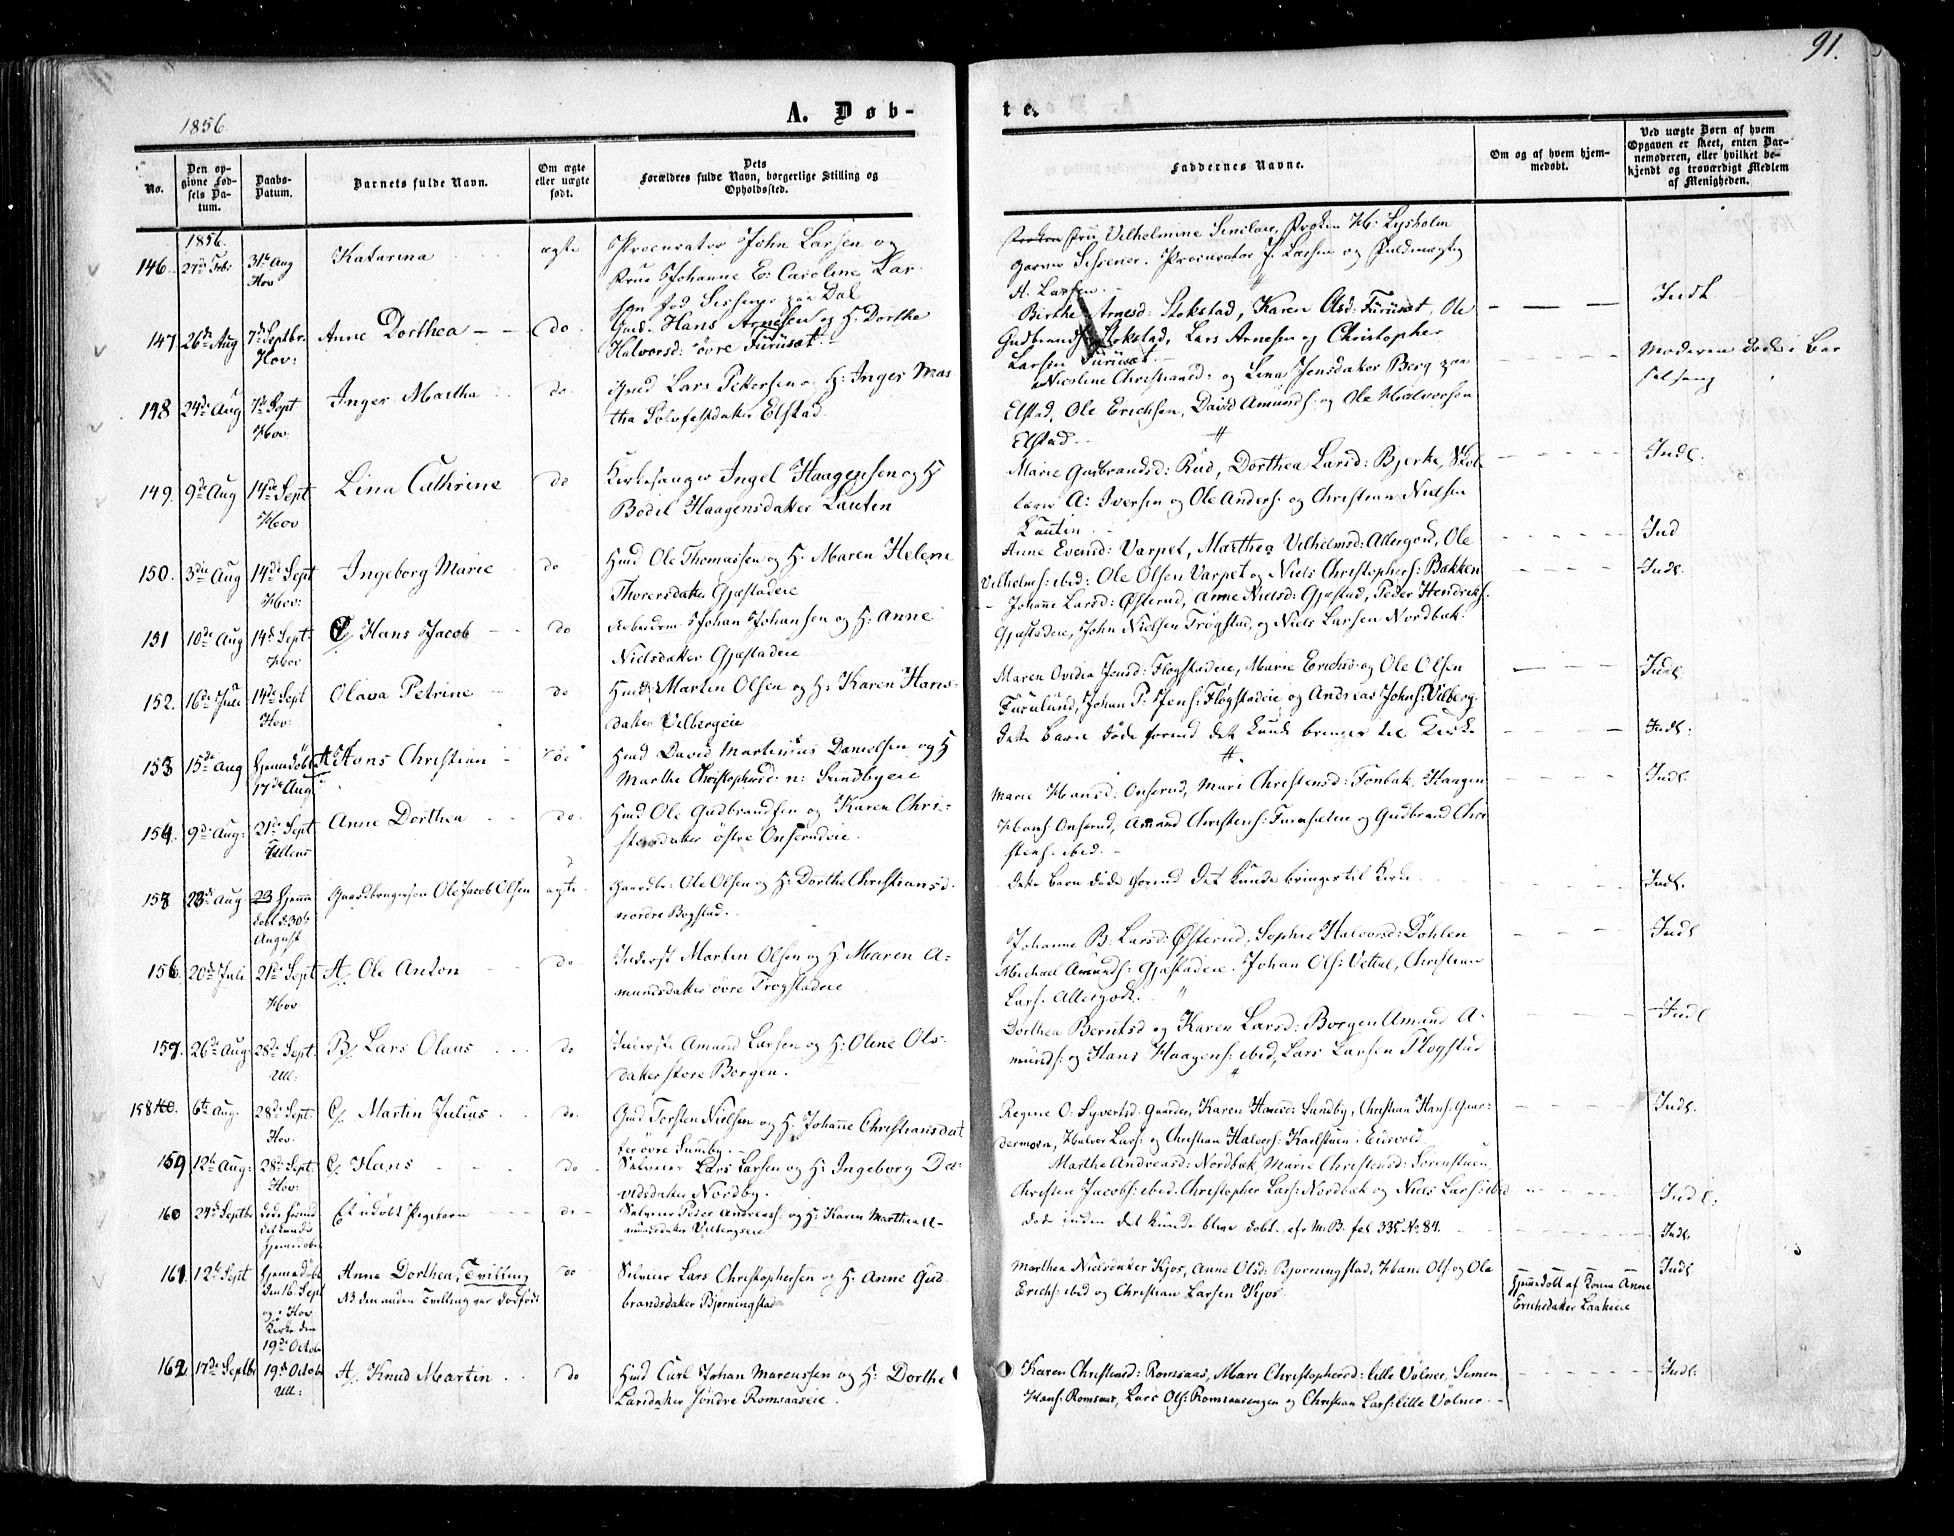 91.
1856
A. Døb-
te.
No.
Den opgivne Fødsels Datum.
Daabs-Datum.
Barnets fulde Navn.
Om ægte eller uægte født.
Dets Forældres fulde Navn, borgerlige Stilling og Opholdssted.
Faddernes Navne.
Om og af hvem hjemmedøbt.
Ved uægte Børn af hvem Opgaven er skeet, enten Barnemoderen, eller hvilket bekjendt og troværdigt Medlem af Menigheden.
1856.
146. 27de Febr 31te Aug Hov Katarina ægte Procurator John Larsen og
Frue Johanne E: Caroline Lar-
sen fød Sissener paa Dal
Fru Vilhelmine Sinclar, Frøken H: Lysholm
Sissener. Procurator J. Larsen og Fuldmægtig
A. Larsen.
147 26de Aug 7de Septbr. Hov: Anne Dorthea do Gmd. Hans Arnesen og H. Dorthe
Halvorsd: øvre Furuset.
Birthe Arnesd: Stokstad, Karen Olsd: Furuset, Ole
Gudbrands: Stokstad, Lars Arnesen og Christopher
Larsen Furuset.
Indl
148 24de Aug 7de Sept Hov Inger Martha do. Gmd Lars Pedersen og H: Inger Mar-
tha Solvfestdatter Elstad
Nicoline Christiansd: og Lina Jensdatter Berg paa
Elstad, Ole Erichsen, David Amunds: og Ole Halvorsen
Elstad.
Moderen døde i Bar
selseng
149. 9de Aug 14de Sept Hov Lina Cathrine do Kirkesanger Ingel Haagensen og H
Bodil Haagensdatter Lautin
Marie Gudbrandsd: Rud, Dorthea Larsd: Bjerke, Skol-
lærer A: Iversen og Ole Anders: og Christian Nielsen
Lautin
Indl.
150. 3die Aug 14de Sept Hov: Ingeborg Marie do Hmd Ole Thomassen og H. Maren Helene
Thorersdatter Gjæstadeie
Anne Evensd: Varpet, Marthea Vilhelmsd: Allergod, Ole
Vilhelms: ibid: Ole Olsen Varpet og Niels Christophers: Bakken
Ind
Indl.
151 10de Aug 14de Sept Hov C/ Hans Jacob do Arbeidsm Johan Johansen og H. Anne
Nielsdatter Gjæstadeie
Johanne Larsd: Østerud, Anne Nielsd: Gjæstad, Peder Hendriks.
Gjæstadeie, John Nielsen Trøgstad, og Niels Larsen Nordbæk.
152. 16de Juli 14de Sept Hov: Olava Petrine do Hmd: Martin Olsen og H: Karen Hans-
datter Vilbergeie
Maren Ovidia Jensd: Flogstadeie, Marie Erichsd og Ole Olsen
Furulund, Johan P: Jens: Flogstadeie og Andreas Johns: Vilberg.
Indl.
153 15de Aug hjemmedøbt 17de Aug. A Hans Christian do Hmd David Martinius Danielsen og H
Marthe Christophersd: n: Sundbyeie
Dette Barn døde forend det kunde bringes til Kirke
Indl:
154. 9de Aug: 21de Sept Ullens Anne Dorthea do. Hmd Ole Gudbrandsen og Karen Chri-
stensdatter østre Onsrudeie.
Marie Hansd: Onsrud, Mari Christensd: Fonbæk, Haagen
Hans Onsrud, Amund Christens: Furuholm og Gudbrand Chri
stens: ibid.
Indl
155 23de Aug 23 Hjemme døbt d. 30te August Gaardbrugersøn Ole Jacob Olsen ægte Gaardbr: Ole Olsen og H. Dorthe Christiansd.
nordre Bogstad.
Dette Barn døde forend det kunde bringes til Kirke
Indl.
156. 20de Juli 21de Sept Hov A. Ole Anton do. Inderst Martin Olsen og H Maren A-
mundsdatter øvre Trogstadeie
Johanne B. Larsd: Østerud, Sophie Halvorsd: Døhlen
Michael Amunds: Gjæstadeie. Johan Ols: Vettal, Christian
Lars: Allergodt.
Indl
157. 26de Aug. 28de Sept. Ull: B/ Lars Olaus do Inderste Amund Larsen og H: Oline Ols-
datter store Borgen.
Dorthea Berntsd og Karen Larsd: Borgen Amund A-
munds: og Hans Haagens: ibid, Lars Larsen Flogstad
Indl
158. 6te Aug. 28de Sept. Hov. C/. Martin Julius do. Gmd Torsten Nielsen og H. Johanne Christiansdat
ter øvre Sundby.
Regine O: Syvertsd: Gaarder, Karen Hansd: Sundby, Christian Hans: Gaar-
dermoen, Halvor Lars: og Christian Halvors: Karlstuen i Eidsvold
Indl.
159 12te Aug: 28de Sept. Hov: C/ Hans do Selveier Lars Larsen og H: Ingeborg Da-
vidsdatter Nordby.
Marthe Andreasd: Nordbæk, Marie Christensd: Sørenstuen,
Christen Jacobs: ibid. Christopher Lars: Nordbæk og Niels Lars: ibid
Indl:
160 24de Septbr døde forend det kunde hjemmedøbes Et udøbt Pigebarn do Selveier Peder Andreas: og H: Karen Marthea A-
mundsdatter Vilbergseie
døde inden det kunde blive døbt. cfr M.B. fol 335 No 84.
Indl.
161. 12te Sept hjemmedøbt den 16. Sept og i Hov Kirke den 19de Octobr Anne Dorthea, Tvilling do Selveier Lars Christophersen og H. Anne Gud-
NB den anden Tvilling var dødfødt
brandsdatter Bjørningstad
Marthea Nielsdatter Kjos, Anne Olsd: Bjørningstad, Hans Ols og Ole
Erichs: ibid og Christian Larsen Kjos.
Hjemmedøbt af Kone Anne
Erichsdatter Laakeie
Indl
162 17de Septbr 19de Octobr Ull: A. Knud Martin do Hmd Carl Johan Marcussen og H: Dorthe
Larsdatter søndre Romsaaseie.
Karen Christensd: Romsaas, Mari Christophersd: lille Vølner, Simen
Hans: Romsaas, Lars Ols: Romsaasengen og Christian Lars: lille Vølner.
Indl: